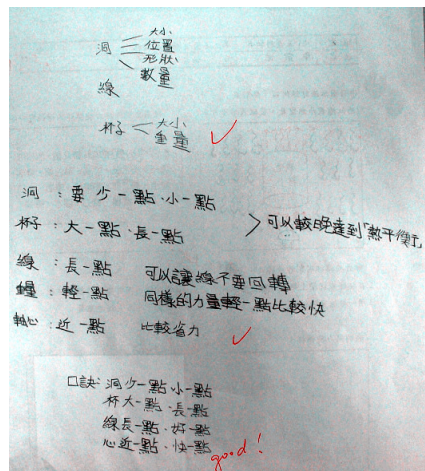 洞
大小
位置
形狀
數量
線
杯子
大小
重量
洞：要少一點、小一點
杯子：大一點、長一點
可以較晚達到「熱平衡」
線：長一點 可以讓線不要回轉
量：輕一點 同樣的力量輕一點比較快
軸心：近一點 比較省力
口訣：洞少一點、小一點
杯大一點、長一點
線長一點、好一點
心近一點、快一點
good!